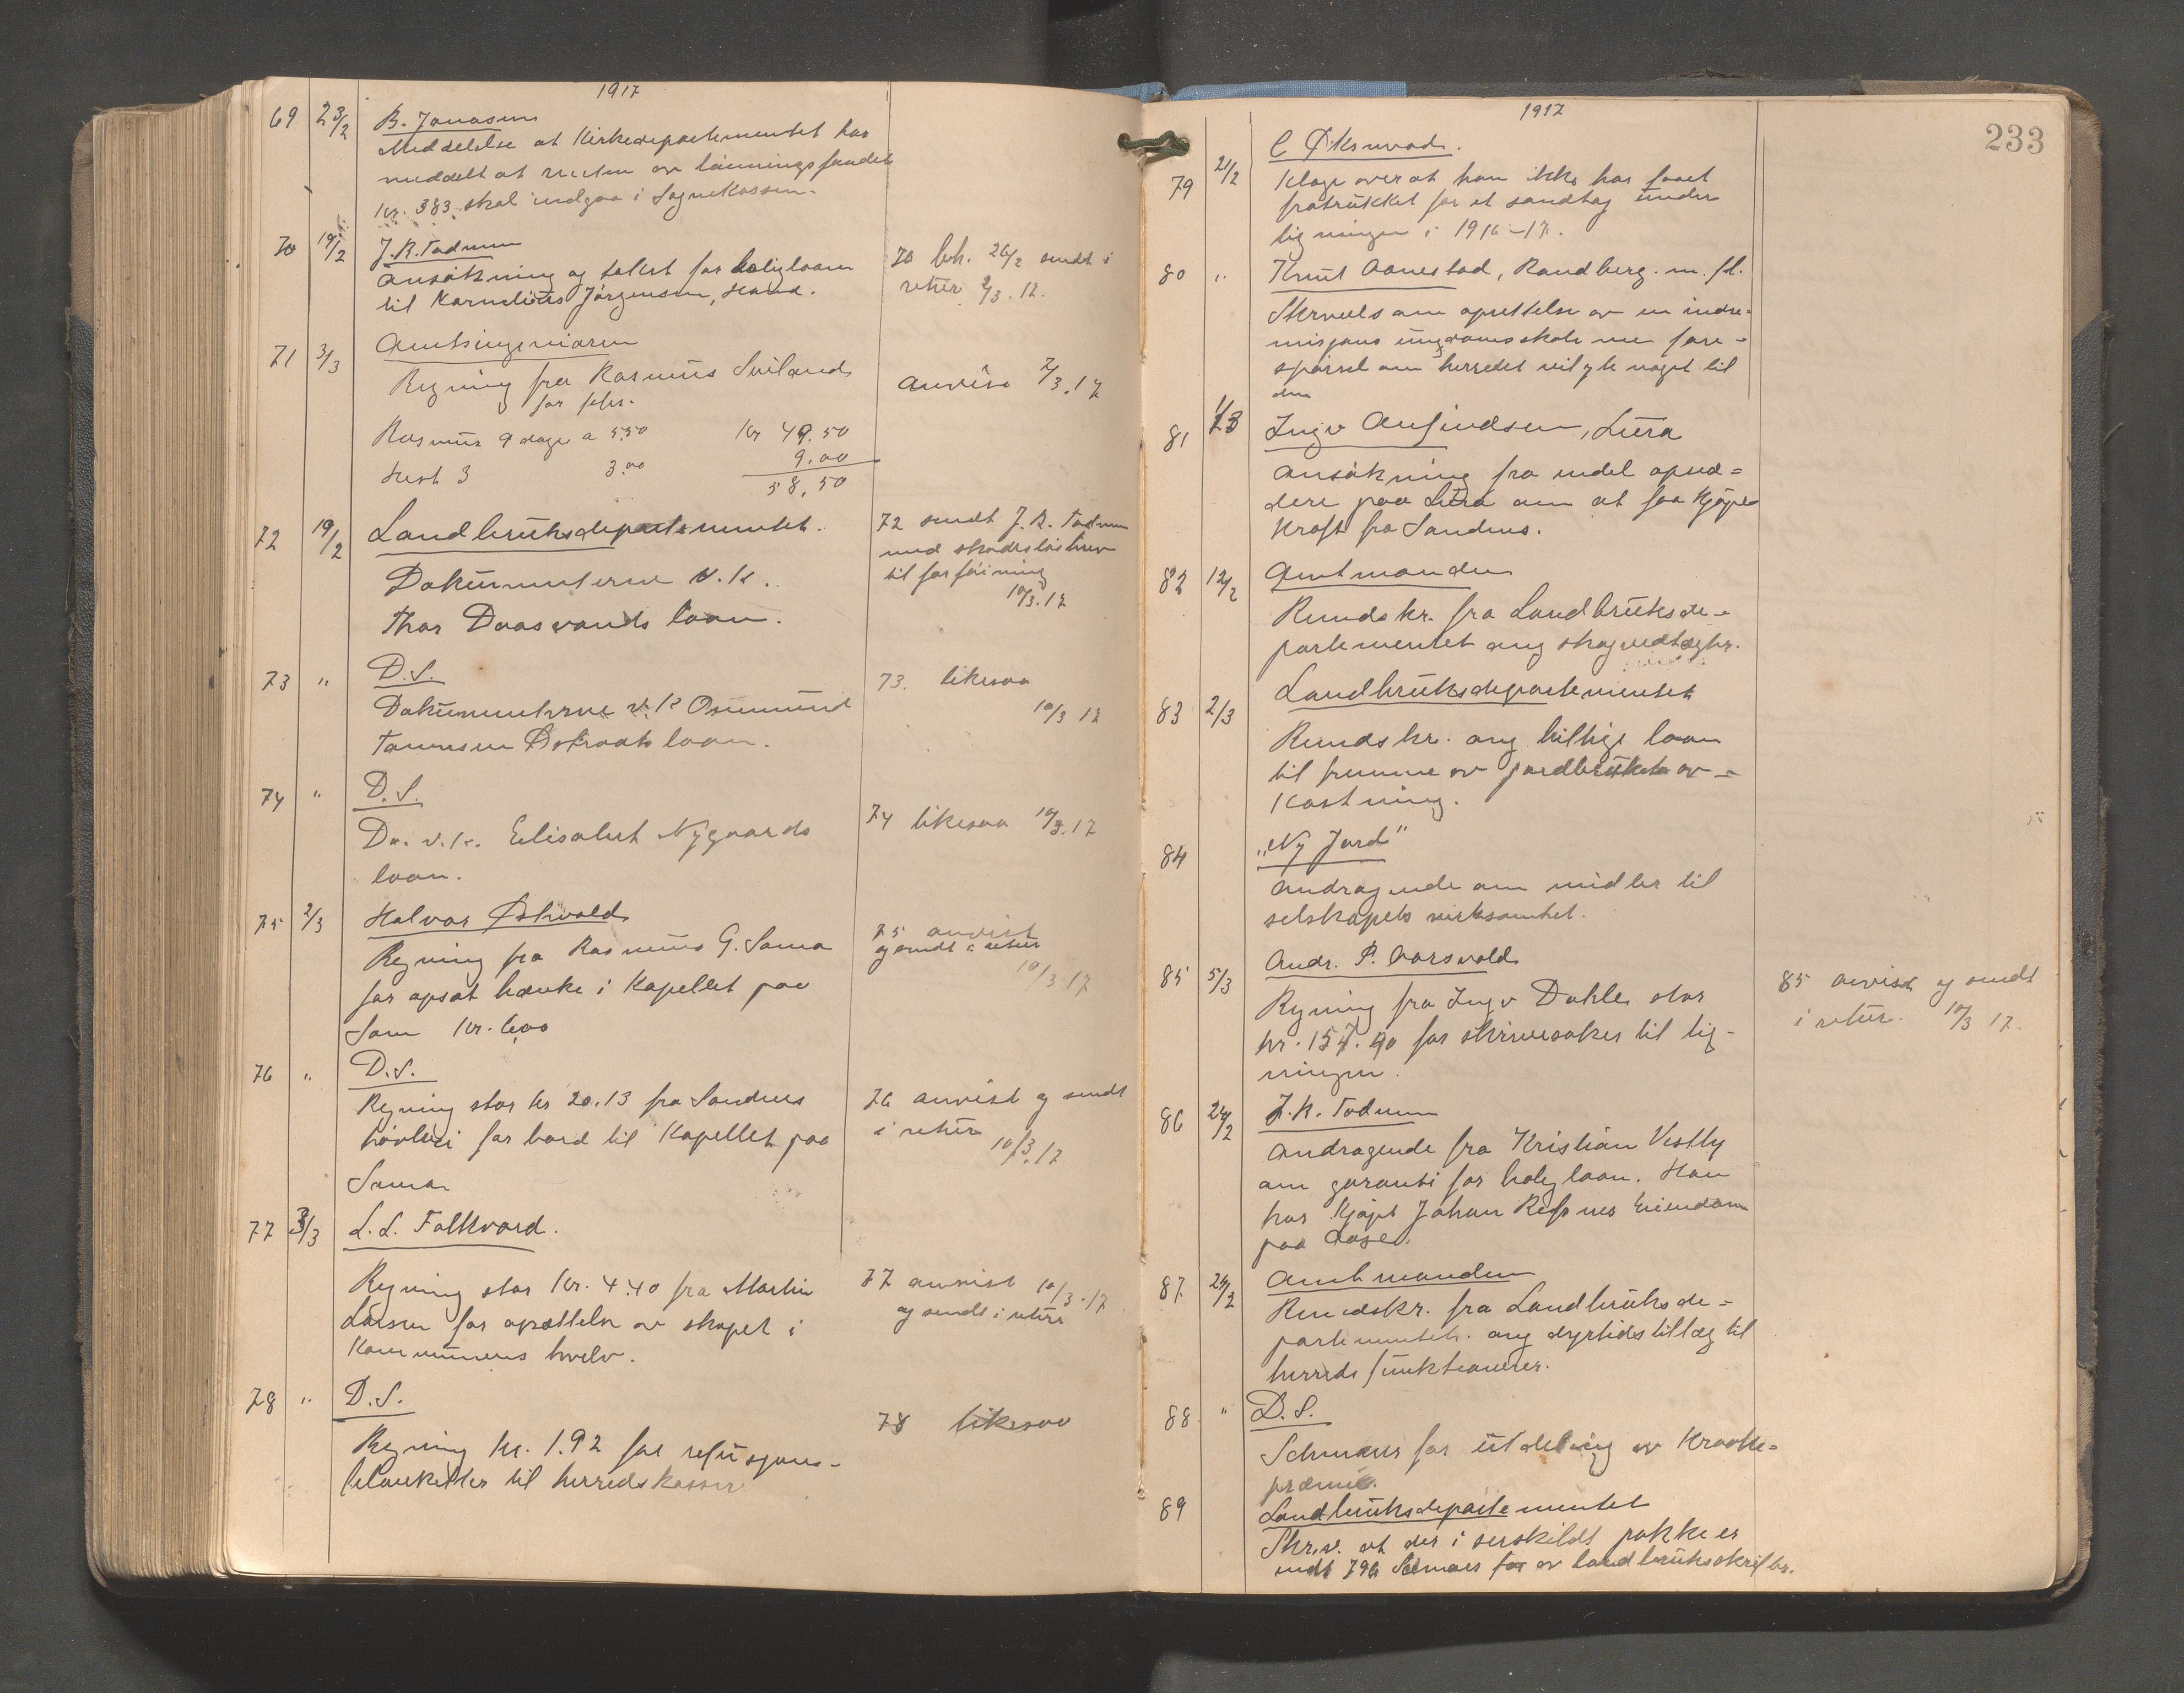 1917
69 23/2 B. Jonassen
Meddelelse at Kirkedepartementet har
meddelt at renten av lønningsfondet
kr. 383 skal indgaa i Sognekassen.
70 19/2 J. R. Todnem
Ansökning og takst for boliglaan
til Kornelius Jörgensen, Hana.
70 beh. 26/2 sendt i
retur 2/3.17.
71 3/3 Amtsingeniören
Regning fra Rasmus Sviland
Rasmus 9 dage a 5.50 Kr 49.50
Hest 3 3.00 9.00
58.50
anvist 7/3.17
72 19/2 Landbruksdepartementet.
Dokumenterne v. k.
Thor Daasvands laan.
72 sendt J. R. Todnem
med skadeslösbrev
til forföining
10/3.17
73 " D.S.
Dokumenterne v. k. Osmund
Tönnesen Östraats laan.
73. likesaa
10/3 17
74 " D.S.
Do. v. k. Elisabet Nygaards
laan.
74 likesaa 10/3.17
75 2/3 Halvor Østvold
Regning fra Rasmus G. Soma
for opsat bænke i Kapellet paa
Som kr. 6,00
75 anvist
og sendt i retur
10/3 17
76 " D.S.
Regning stor kr 20.13 fra Sandnes
høvleri for bord til Kapellet paa
Soma
76 anvist og sendt
i retur
10/3.17
77 3/3 L. L. Folkvord.
Regning stor kr. 4.40 fra Martin
Larsen for opsættelse av skapet i
Kommunens hvelv.
77 anvist 10/3.17
og sendt i retur
78 " D.S.
Regning kr. 1.92 for refusjons-
blanketter til herredskasserer
78 likesaa
1917
233
79 21/2 C Øksnevad.
Klage over at han ikke har faaet
fratrukket for et sandtag under
ligningen i 1916-17.
80 " Knut Aanestad, Randberg. m. fl.
Skrivels om oprettelse av en indre-
misjons ungdomsskole med fore-
spørsel om herredet vil yte noget til
den
81 1/3 Ingv Aufindsen, Lura
Ansökning fra endel opsid=
dere paa Lura om at faa kjöpe
kraft fra Sandnes.
82 12/2 Amtmanden
Rundskr. fra Landbruksde=
partementet ang skogvedtægter.
83 2/3 Landbruksdepartementet
Rundskr. ang billige laan
til fremme av jordbrukets av=
kastning.
84 "Ny Jord"
Andragende om midler til
selskapets virksomhet.
85 5/3 Andr. P. Aarsvold
Regning fra Ingv Dahle, stor
kr. 157.40 for skrivesaker til lig-
ningen.
85 anvist og sendt
i retur. 10/3 17.
86 24/2 J. R. Todnem
Andragende fra Kristian Vestly
om garanti for boliglaan. Han
har kjöpt Johan Refsnes Eiendom
paa Aase.
87 24/2 Amtmanden
Rundskr. fra Landbruksde=
partementet. ang dyrtidstillæg til
herredsfunktionerer.
88 " D.S.
Schemaer for utdeling av Kraake-
præmie.
89 Landbruksdepartementet
Skriv. at der i serskildt pakke er
sendt 796 av landbruksskrifter.